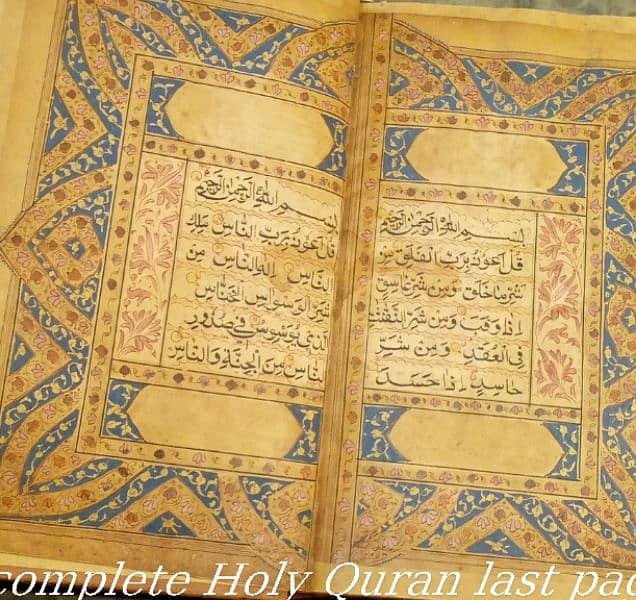 بسم الله الرحمن الرحيم
قل اعوذ برب الفلق من
شر ما خلق ومن شر غاسق
اذا وقب ومن شر النفثت
في العقد ومن شر
حاسد اذا حسد
بسم الله الرحمن الرحيم
قل اعوذ برب الناس ملك
الناس اله الناس من
شر الوسواس الخناس
الذي يوسوس في صدور
الناس من الجنة والناس
complete Holy Quran last